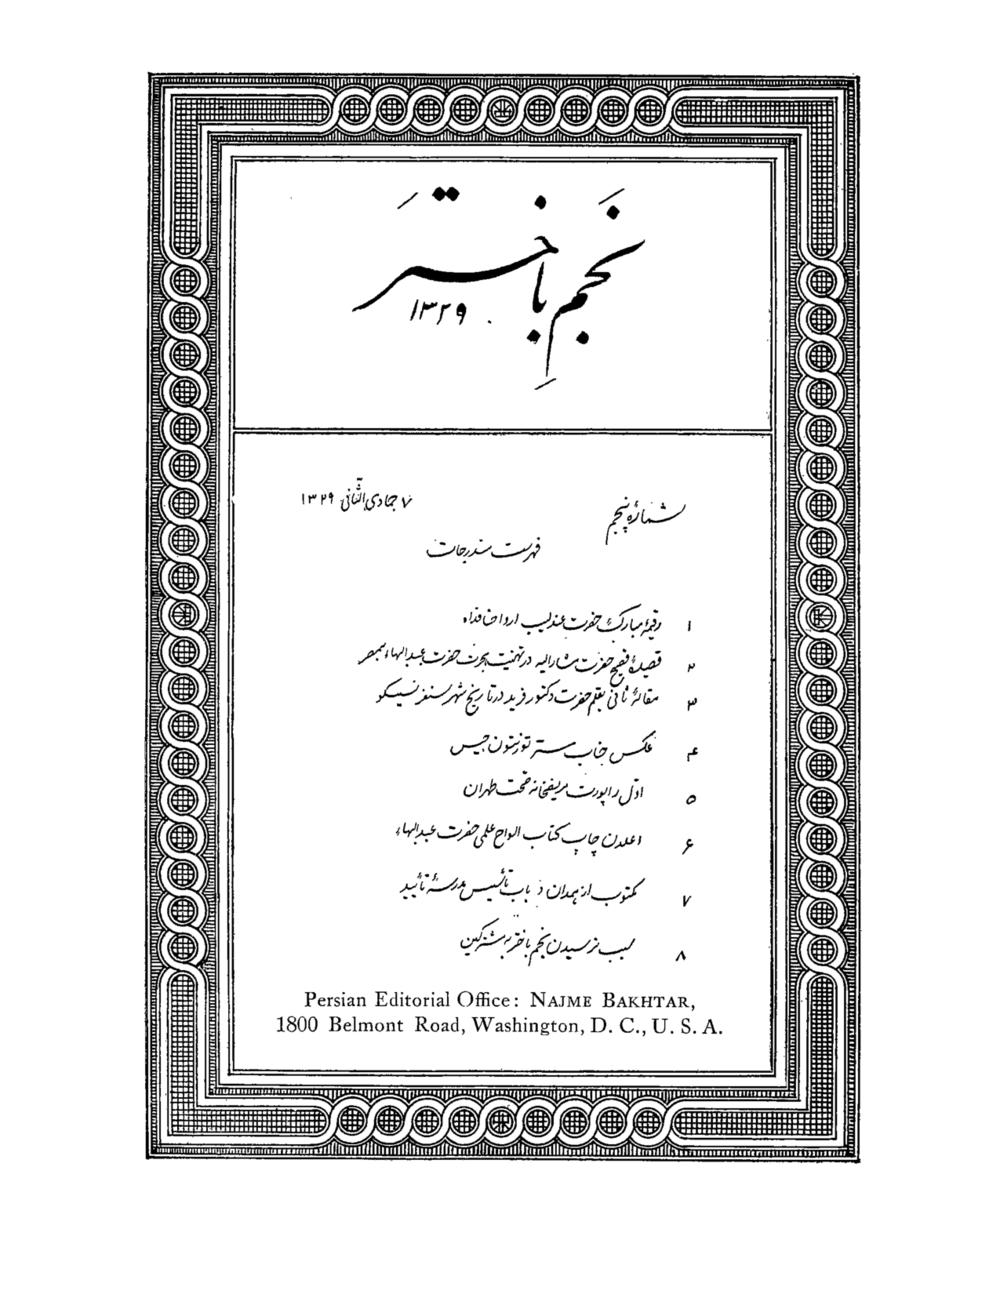 نجم باختر
۱۳۲۹
شمارهٔ پنجم
۷ جمادی الثانی ۱۳۲۹
فهرست مندرجات
۱ رقیمهٔ مبارک حضرت عندلیب ارواحنا فداه
۲ قصیدهٔ فصیح حضرت مشارالیه در تهنیت هجرت حضرت عبدالبهاء بمصر
۳ مقالهٔ ثانی بقلم حضرت دکتور فرید در تاریخ شهر سنفرنسیسکو
۴ عکس جناب مستر تورنتون چیس
۵ اوّل راپورت مریضخانه صحّت طهران
۶ اعلان چاپ کتاب الواح علمی حضرت عبدالبهاء
۷ مکتوب از همدان در باب تأسیس مدرسهٔ تأیید
۸ سبب نرسیدن نجم باختر به مشترکین
Persian Editorial Office: NAJME BAKHTAR,
1800 Belmont Road, Washington, D. C., U. S. A.